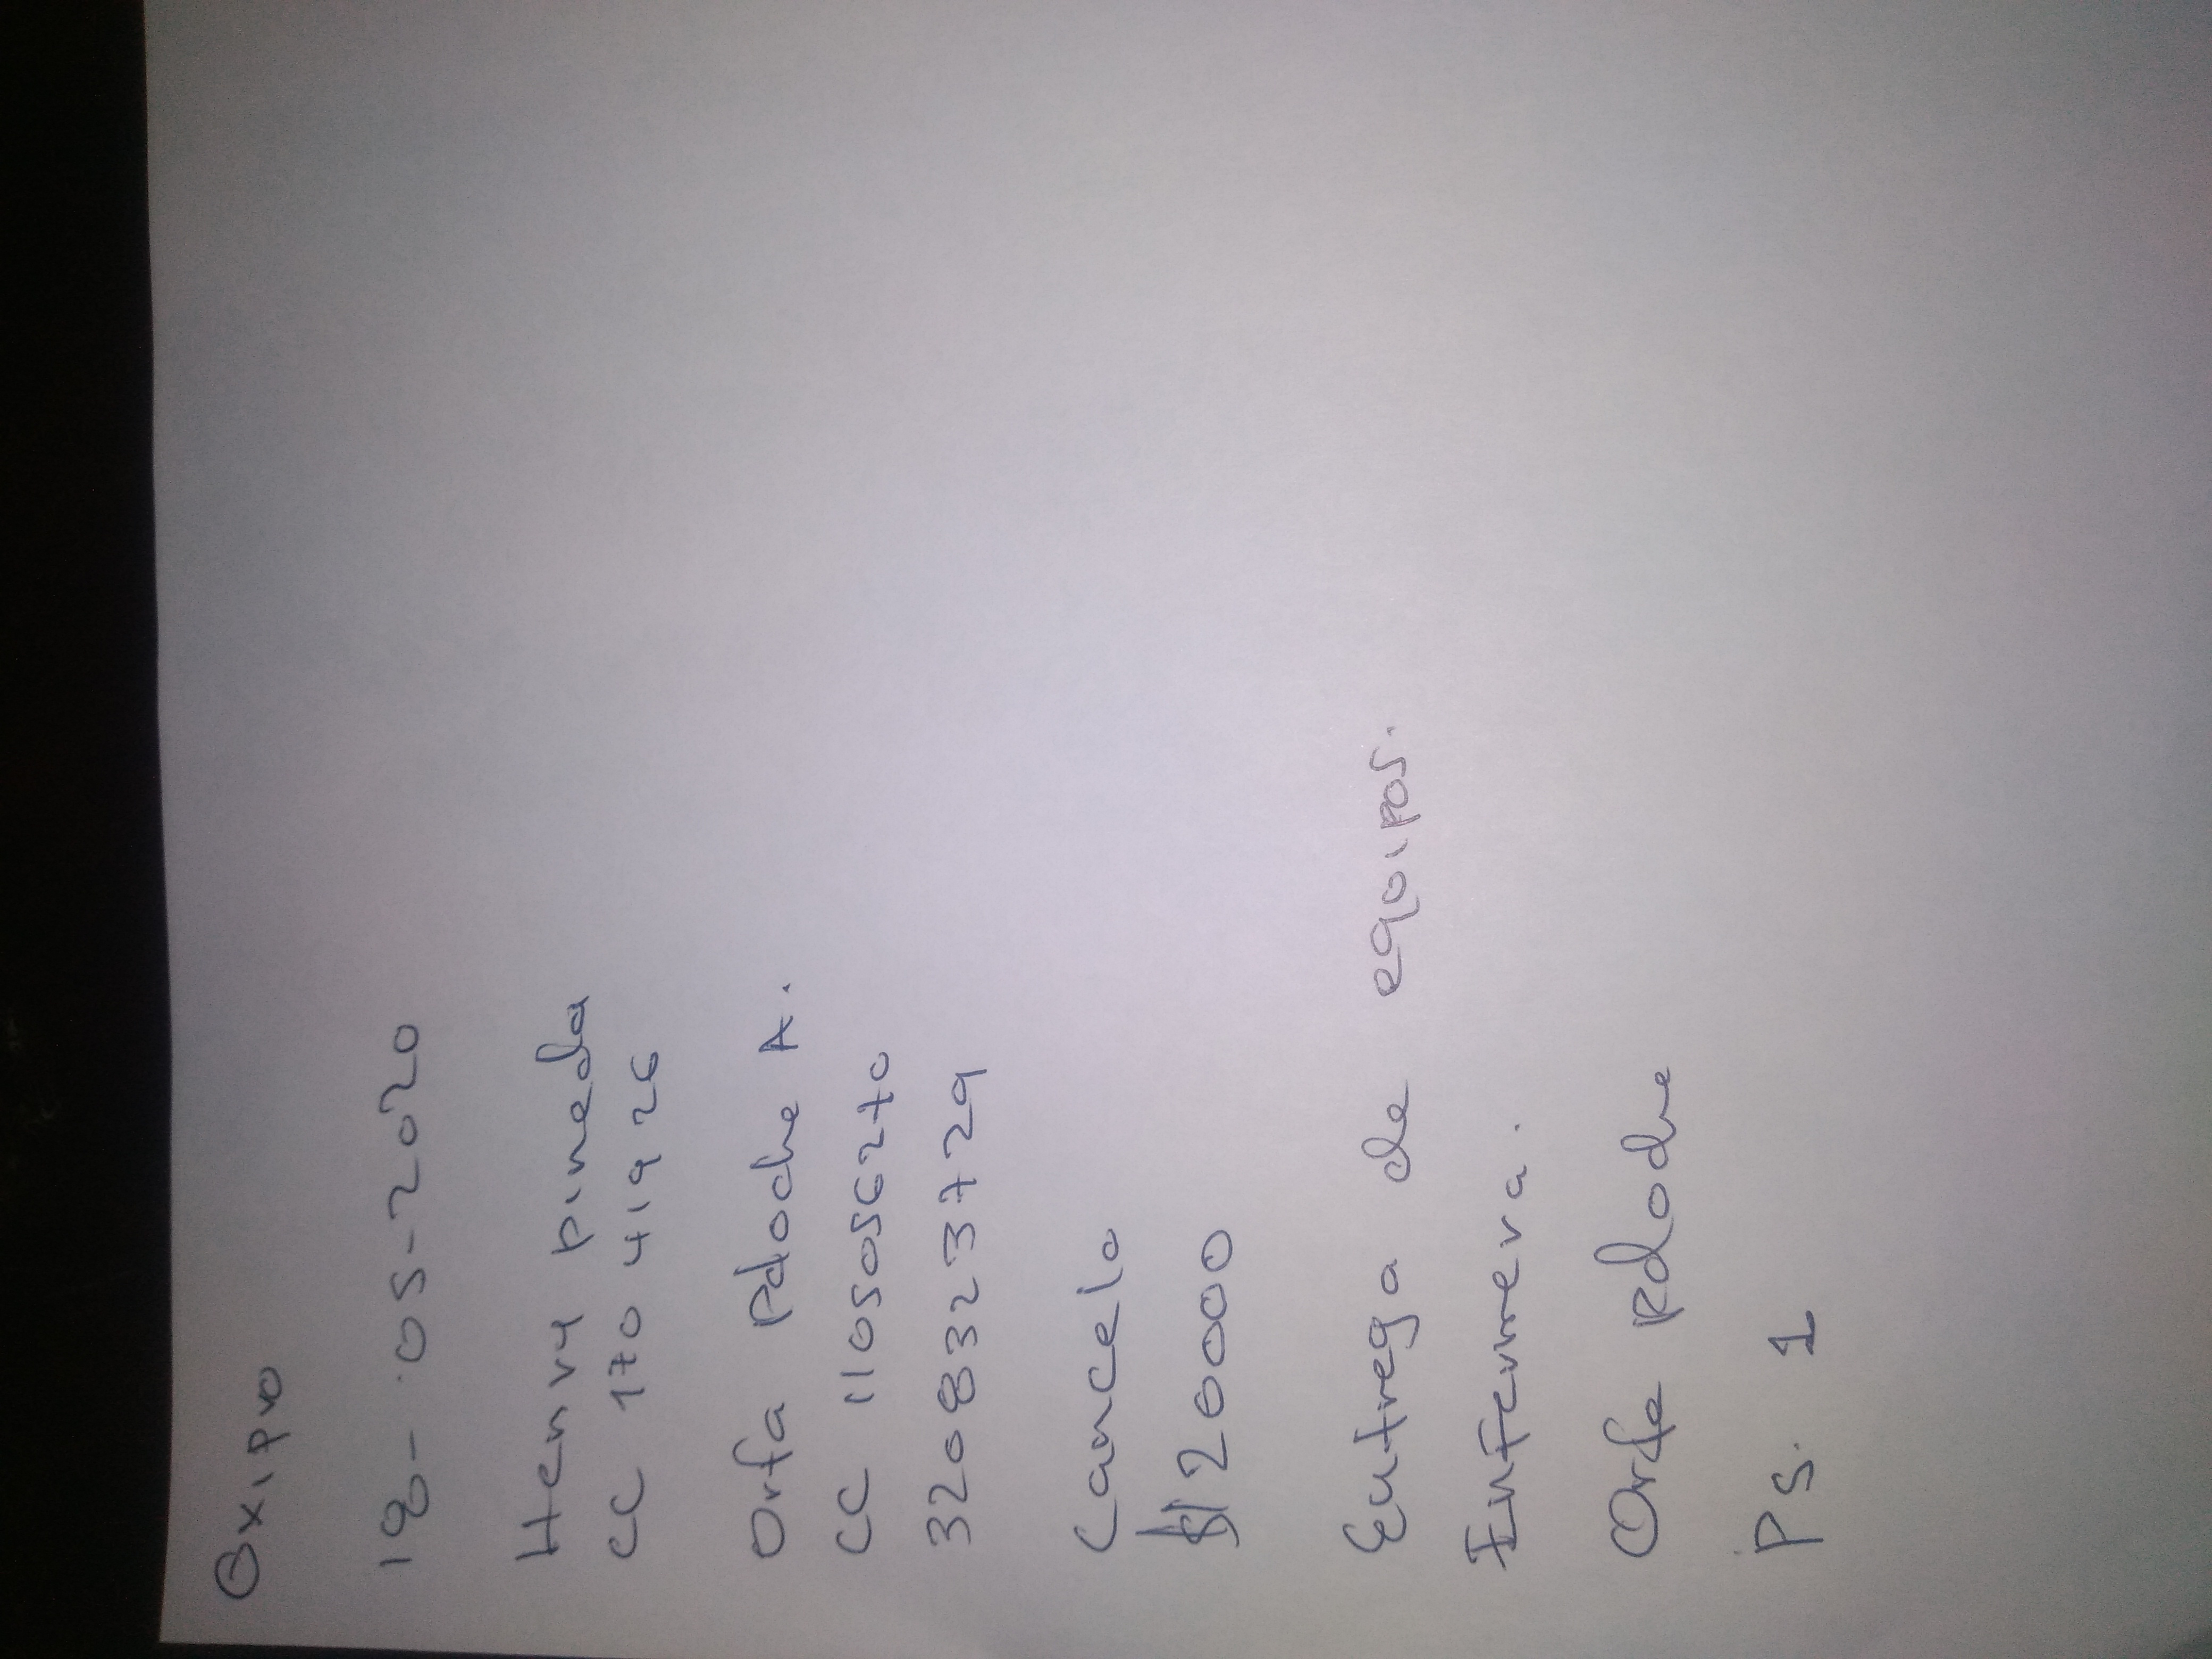 Oxipro
18-05-2020
Henry pineda
CC 170 419 26
Orfa Pdoche A.
CC 1105056270
3208323729
Cancelo
$120000
Entrega de equipos.
Enfermera.
Orfa Pdoche
PS. 1